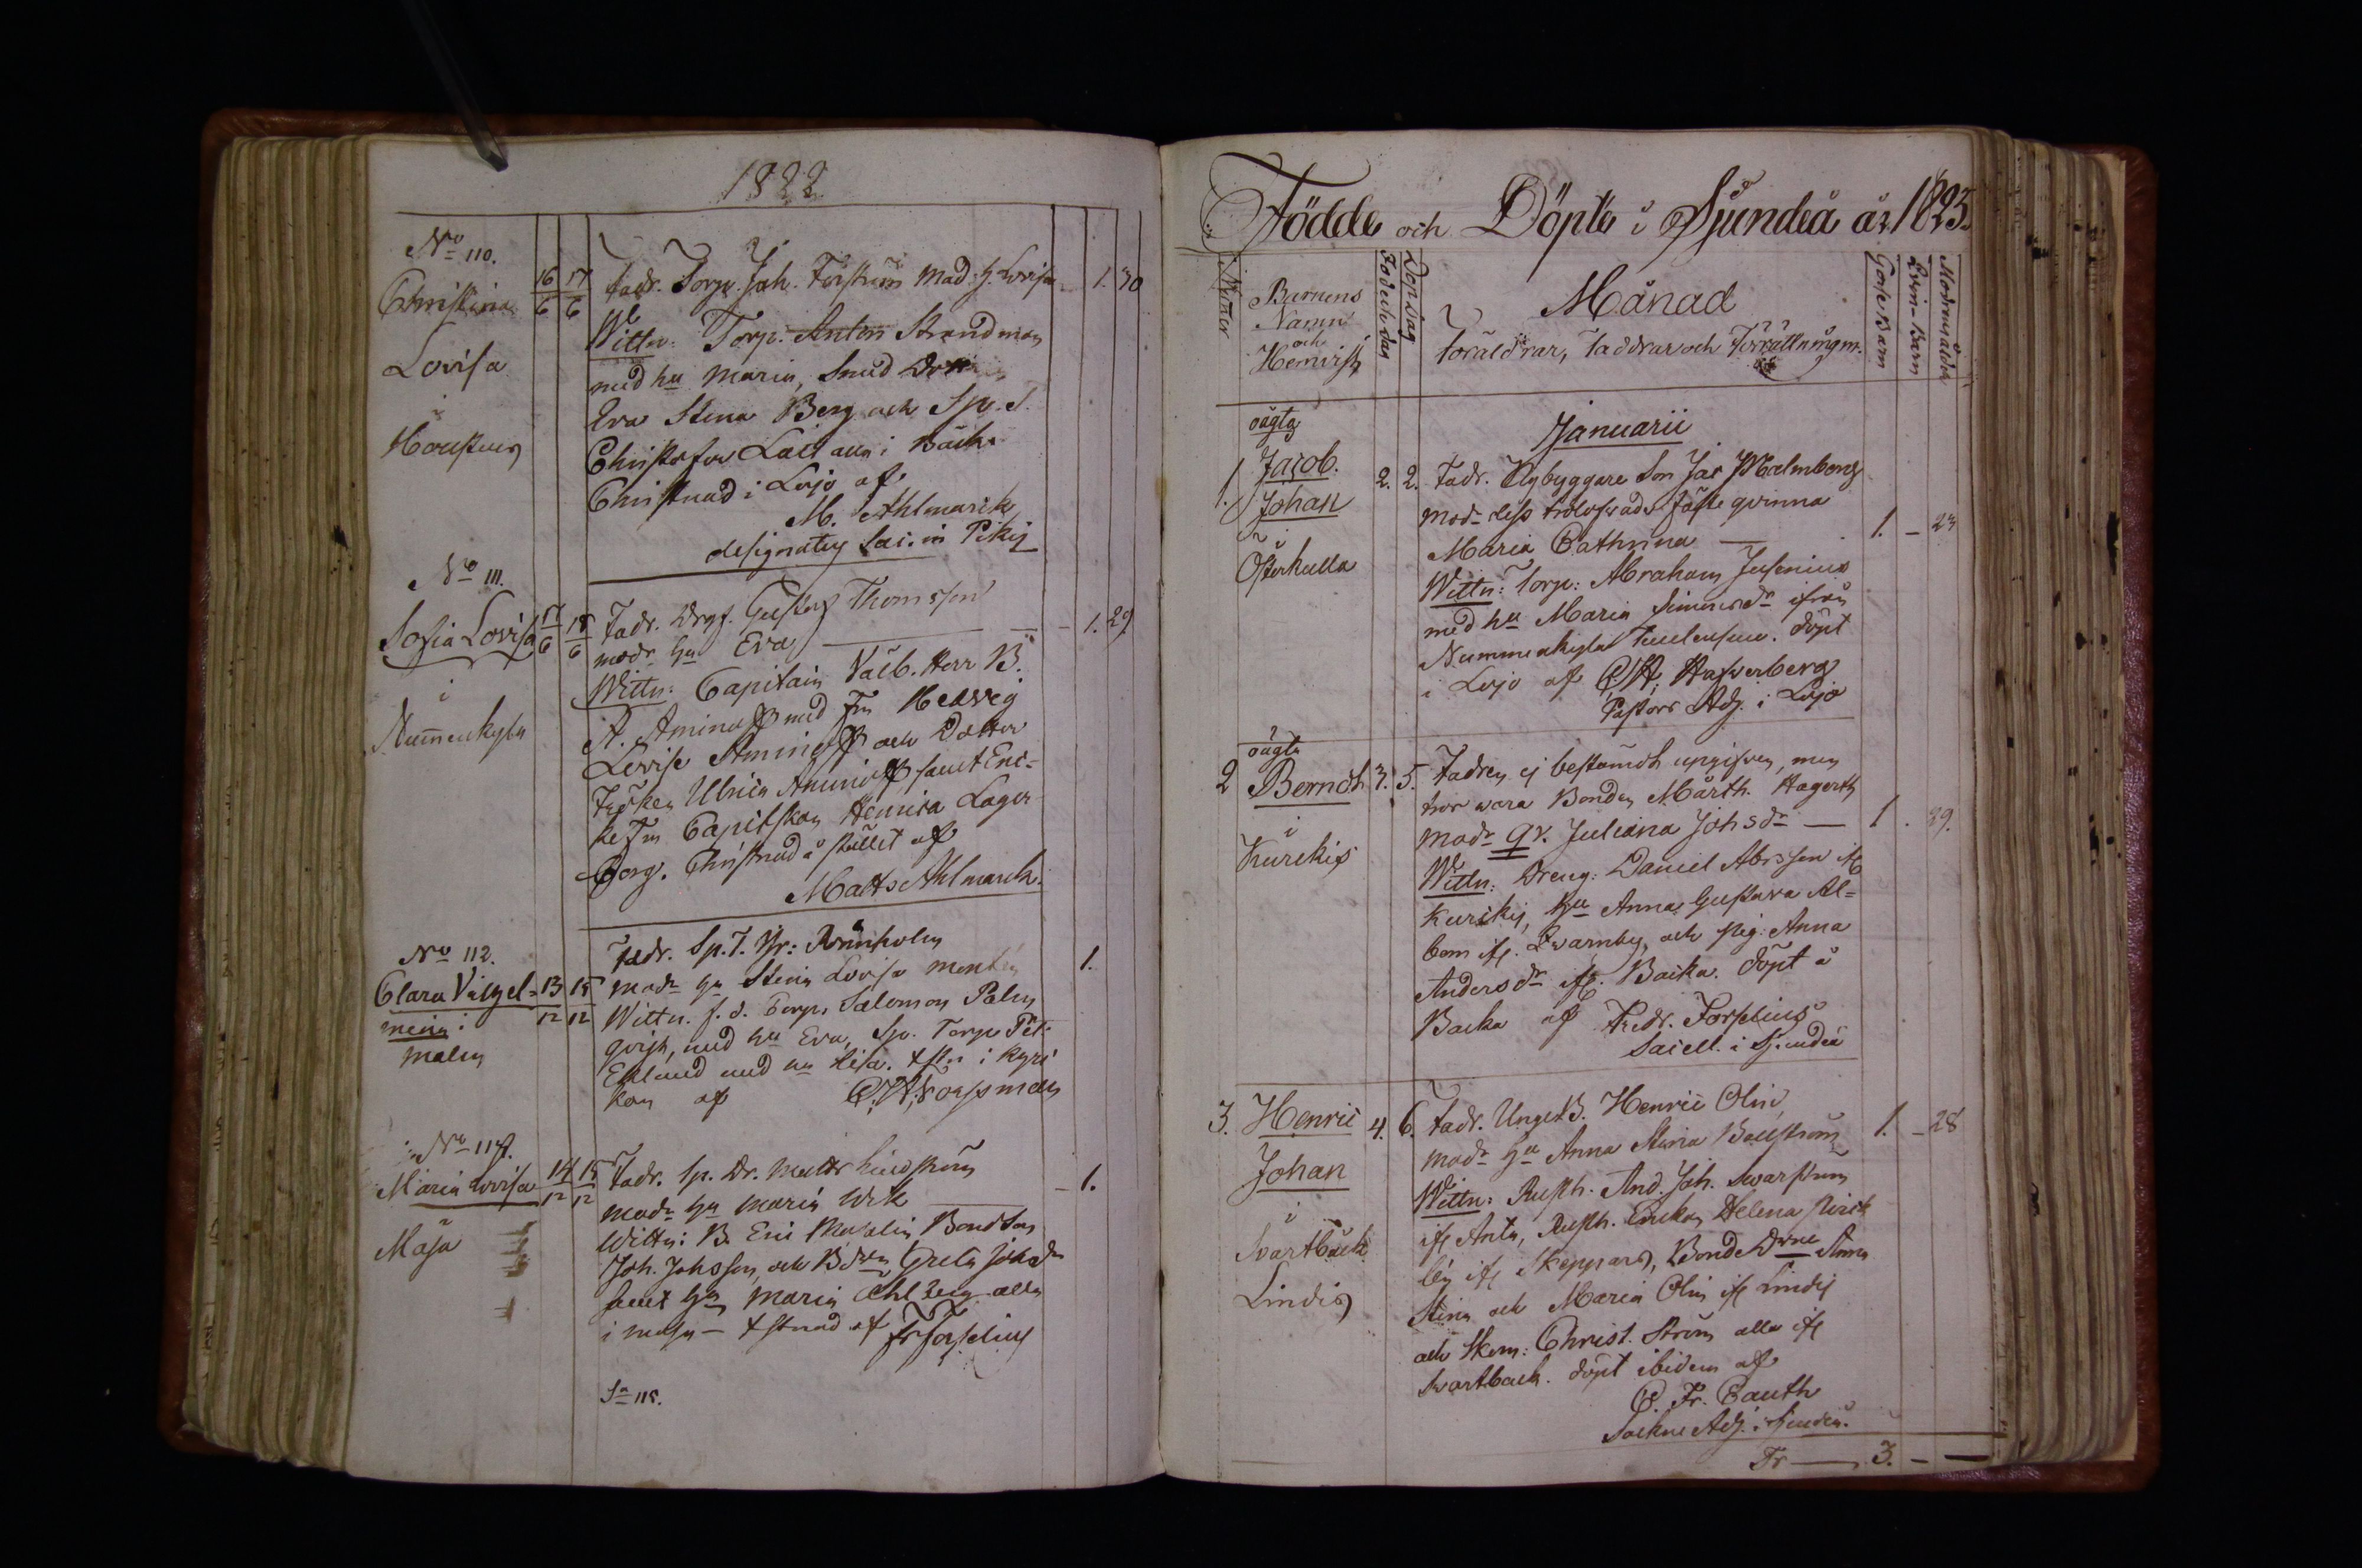 1822
No 110.
Christina
Lovisa
i
16 17
6 6
Fadr. Torp. Joh. Förström Mad: h. Lovisa 1. 30
Wittn: Torp. Anton Strandman
med hu Maria, Smed
Eva Stina Berg och Sp. S.
Christofer alla i Bäck
Christnad i Lojo af
M. Ahlmarck
designatus Sac. in Pikis
No 111.
Sofia Lovisa
i
Nummenkyla
17 18
6 6
Fadr. Drgs. Gustaf Thomsson
modr hu Eva — 1. 29.
Wittn: Capitain Välb. Herr B.
A. Aminoff med Fru Hedvig
Lovisa Aminoff och Dotter
Fröken Ulrica Aminoff samt Enc-
ke Fru Capitskan Henrica Lager
borg. Christnad å stället af
Matts Ahlmarck.
No 112.
Clara Vilhel-
mina i
Malm
13 15
12 12
Fadr. Sp. T. Hr: Rönnholm
modr hu Stina Lovisa 1.
Wittn. f. d. Corp. Salomon Palm
qvist, med hu Eva, Sp. Torp
Eklund med hu Lisa. i Kyr
kan af
No 114.
Maria Lovisa
Masa
14 15
12 12
Fadr. Sp. Dr. Matts Lindström
modr hu Maria Wik 1.
Wittn: B. Eric Bondson
Joh. Johsson, och Greta Johsdr
samt hu Maria alla
i Masa — af Fr Forselius
Sa 115.
Födde och Döpte i Sjundeå år 1823.
Numer
Barnens
Namn
och
Hemvist
Födelsedag
Dopdag
Månad
Föräldrar, Faddrar och Förrättningm.
Gosse Barn
Qvin-Barn
Modrens ålder
Januarii
oägta
1. Jacob.
Johan
i
Österkulla
2. 2. Fadr. Nybyggare Son Jac Malmberg
Modr dess trolofvade fäste qvinna
Maria Cathrina — 1. – 23
Wittn: Torp: Abraham Jusenius
med hu Maria Simonsdr ifrån
Nummenkyla döpt
i Lojo af C. H. Hafverberg
Pastors Adj. i Lojo
oägta
2 Berndt 3. 5.
i
Kurckis
Fadren ej bestämdt uppgifven, men
tror vara Bonden Märth. Hagerth
Modr qv. Juliana Johsdr — 1. 39.
Wittn: Dreng: Daniel Abrsson if
Kurckis, hu Anna Gustava Al=
bom if. Qvarnby, och pig. Anna
Andersdr if. Backa. Döpt å
Backa af Fredr. Forselius
Sacell. i Sjundeå
3. Henric 4. 6.
Johan
i
Svartbäck
Lindis
Fadr. Unge B. Henric Olin, 1. – 28
Modr hu Anna Stina Bäckström
Wittn: Rusth. And. Joh. Svarström
if Anta, Rusth. Enkan Helena
if Skeppars, Bonde Anna
Stina och Maria Olin if Lindis
och Skom: Christ. Ström alla if
Svartback. döpt ibidem af
C. Fr. Canth
Sockne Adj. i Sjundeå.
Tr — 3. – —